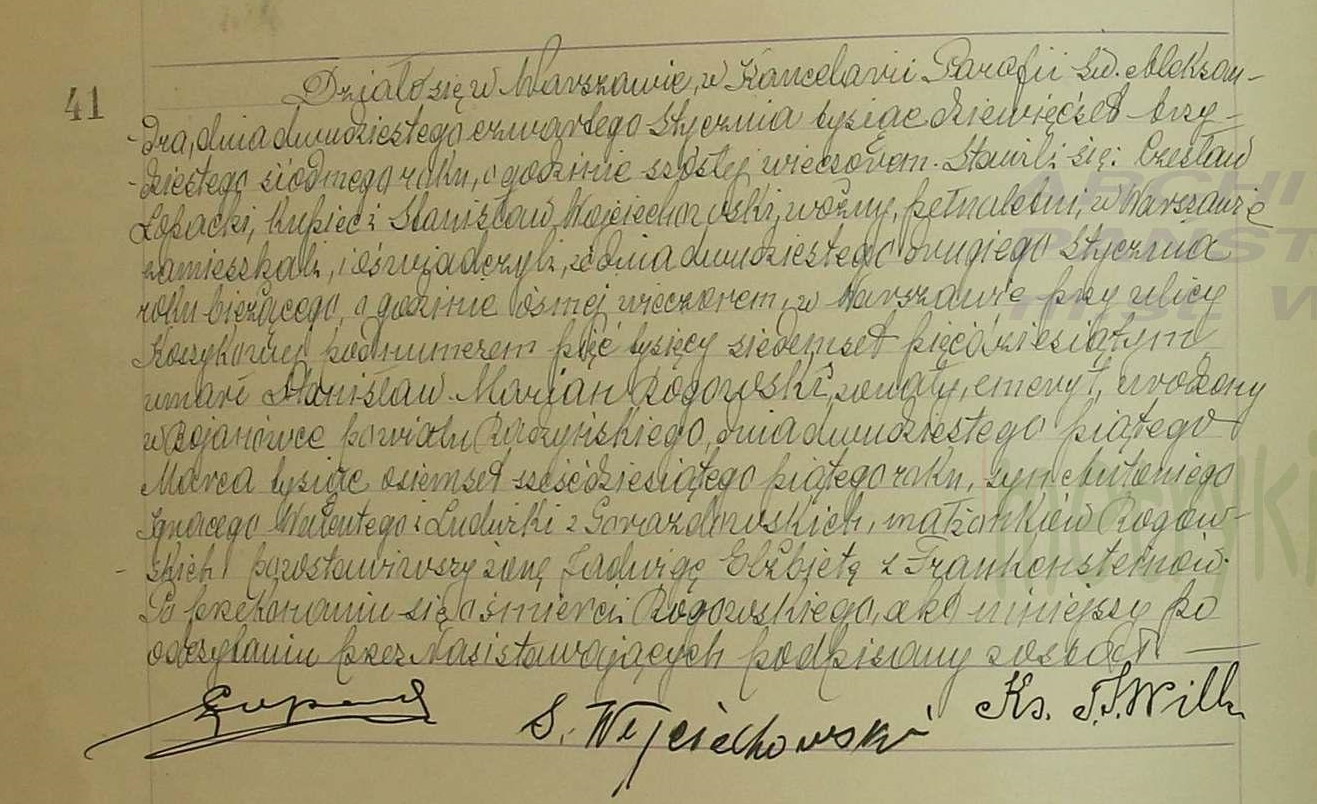 41
Działo się w Warszawie, w Kancelarii Parafii św. Aleksan-
-dra, dnia dwudziestego czwartego Stycznia tysiąc dziewięćset trzy-
-dziestego siódmego roku, o godzinie szóstej wieczorem. Stawili się: Czesław
Łopacki, kupiec i Stanisław Wojciechowski, woźny, pełnoletni, w Warszawie
zamieszkali, i oświadczyli, że dnia dwudziestego drugiego Stycznia
roku bieżącego, o godzinie ósmej wieczorem, w Warszawie przy ulicy
Koszykowej pod numerem pięć tysięcy siedemset pięćdziesiątym
umarł Stanisław Marjan Rogowski, żonaty, emeryt, urodzony
w Rojanówce powiatu Raczyńskiego, dnia dwudziestego piątego
Marca tysiąc osiemset sześćdziesiątego piątego roku, syn Antoniego
Ignacego Walentego i Ludwiki z Gorazdowskich, małżonków Rogow-
-skich, pozostawiwszy żonę Jadwigę Elżbietę z Frankensteinów.
Po przekonaniu się o śmierci Rogowskiego, akt niniejszy po
odczytaniu przez Nas i stawających podpisany został.
S. Wojciechowski
Ks. J. Wilk
ARCHI
PAŃST
m.st. W
metryki